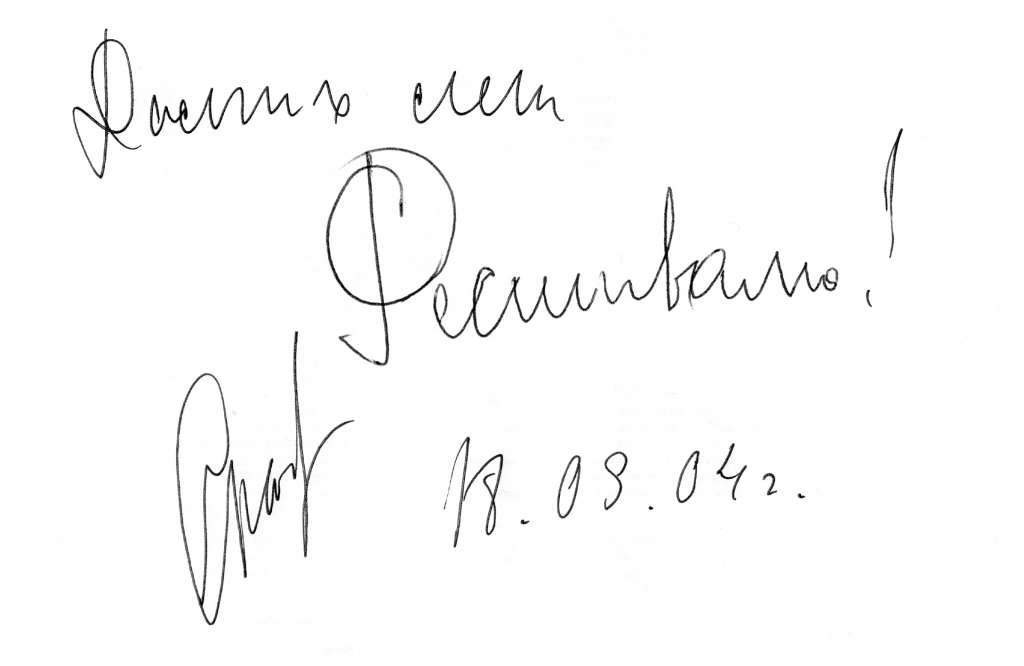 Долгих лет
Фестивалю!
18.09.04г.